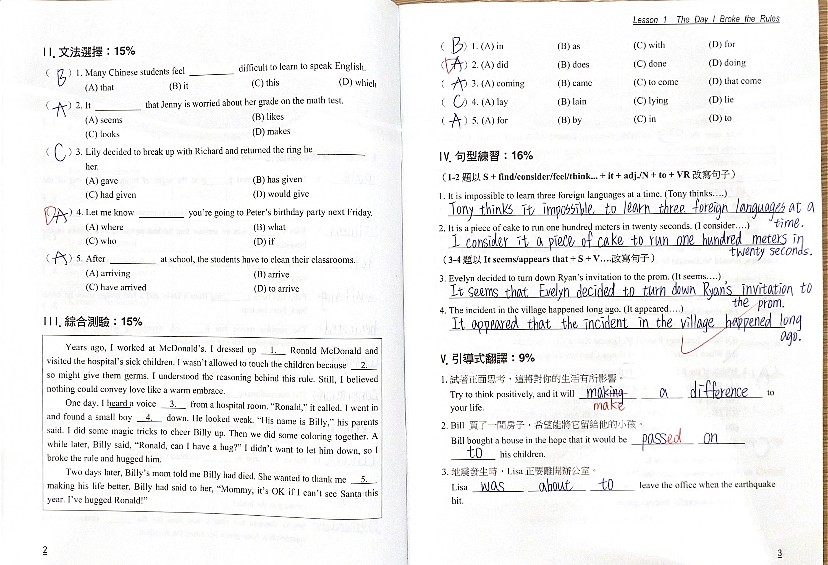 II. 文法選擇：15%
( B ) 1. Many Chinese students feel ________ difficult to learn to speak English.
(A) that (B) it (C) this (D) which
( A ) 2. It ________ that Jenny is worried about her grade on the math test.
(A) seems (B) likes
(C) looks (D) makes
( C ) 3. Lily decided to break up with Richard and returned the ring he ________
her.
(A) gave (B) has given
(C) had given (D) would give
( D A ) 4. Let me know ________ you're going to Peter's birthday party next Friday.
(A) where (B) what
(C) who (D) if
( A ) 5. After ________ at school, the students have to clean their classrooms.
(A) arriving (B) arrive
(C) have arrived (D) to arrive
III. 綜合測驗：15%
Years ago, I worked at McDonald's. I dressed up 1. Ronald McDonald and
visited the hospital's sick children. I wasn't allowed to touch the children because 2.
so might give them germs. I understood the reasoning behind this rule. Still, I believed
nothing could convey love like a warm embrace.
One day, I heard a voice 3. from a hospital room. "Ronald," it called. I went in
and found a small boy 4. down. He looked weak. "His name is Billy," his parents
said. I did some magic tricks to cheer Billy up. Then we did some coloring together. A
while later, Billy said, "Ronald, can I have a hug?" I didn't want to let him down, so I
broke the rule and hugged him.
Two days later, Billy's mom told me Billy had died. She wanted to thank me 5.
making his life better. Billy had said to her, "Mommy, it's OK if I can't see Santa this
year. I've hugged Ronald!"
2
Lesson 1 The Day I Broke the Rules
( B ) 1. (A) in (B) as (C) with (D) for
( A ) 2. (A) did (B) does (C) done (D) doing
( A ) 3. (A) coming (B) came (C) to come (D) that come
( C ) 4. (A) lay (B) lain (C) lying (D) lie
( A ) 5. (A) for (B) by (C) in (D) to
IV. 句型練習：16%
(1-2 題以 S + find/consider/feel/think... + it + adj./N + to + VR 改寫句子)
1. It is impossible to learn three foreign languages at a time. (Tony thinks….)
Tony thinks it impossible to learn three foreign languages at a
time.
2. It is a piece of cake to run one hundred meters in twenty seconds. (I consider….)
I consider it a piece of cake to run one hundred meters in
twenty seconds.
(3-4 題以 It seems/appears that + S + V….改寫句子)
3. Evelyn decided to turn down Ryan's invitation to the prom. (It seems….)
It seems that Evelyn decided to turn down Ryan's invitation to
the prom.
4. The incident in the village happened long ago. (It appeared….)
It appeared that the incident in the village happened long
ago.
V. 引導式翻譯：9%
1. 試著正面思考，這將對你的生活有所影響。
Try to think positively, and it will making a difference to
make
your life.
2. Bill 買了一間房子，希望能將它留給他的小孩。
Bill bought a house in the hope that it would be passed on
to his children.
3. 地震發生時，Lisa 正要離開辦公室。
Lisa was about to leave the office when the earthquake
hit.
3